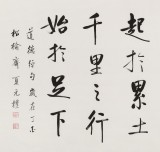 起於累土
千里之行
始於足下
道德經句 歲在丁丑